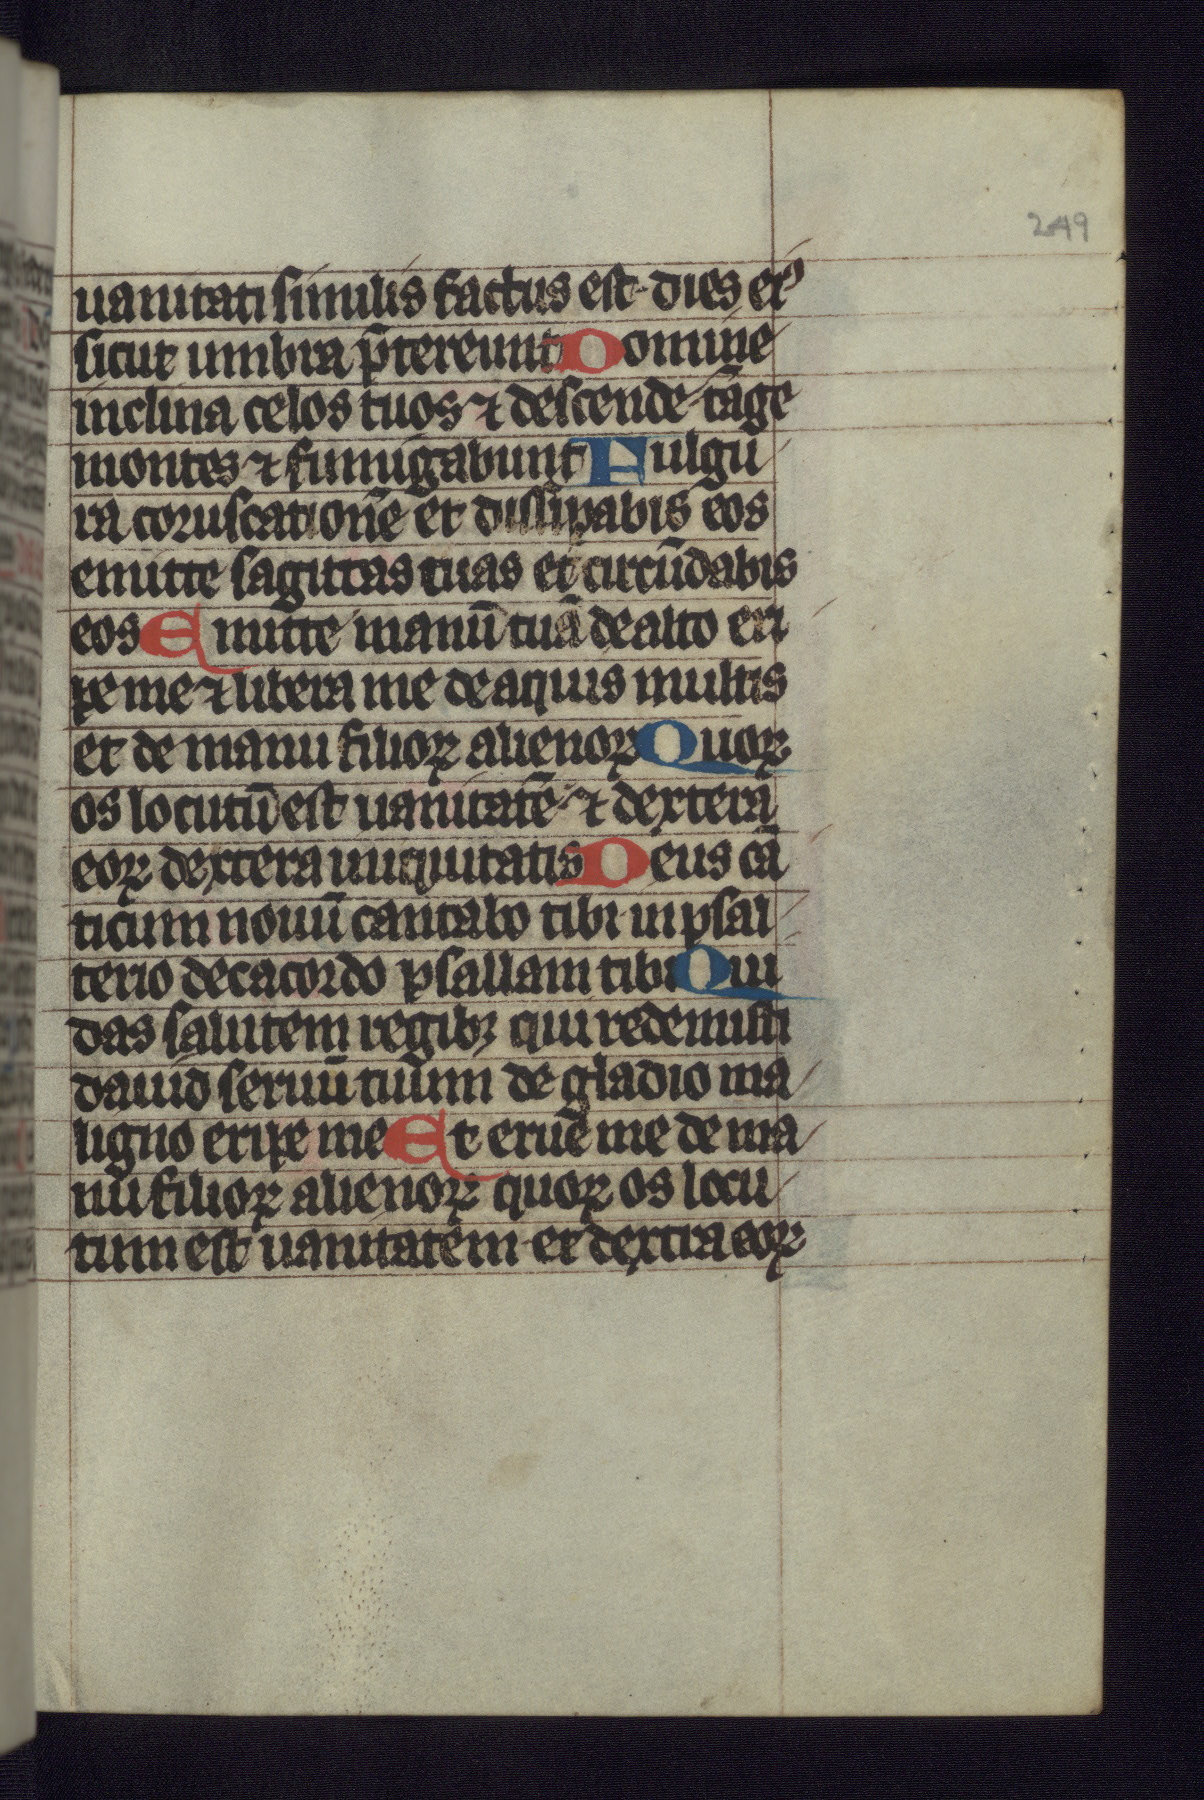 249
uanitati similis factus est dies eiꝰ
sicut umbra p̄tereunt Domine
inclina celos tuos ⁊ descende tāge
montes ⁊ fumigabunt Fulgu
ra coruscationē et dissipabis eos
emitte sagittas tuas et circūdabis
eos Emitte manū tuā de alto eri
pe me ⁊ libera me de aquis multis
et de manu filioꝝ alienoꝝ Quoꝝ
os locutū est uanitatē ⁊ dextera
eoꝝ dextera iniquitatis Deus cā
ticum nouū cantabo tibi in psal
terio decacordo psallam tibi Qui
das salutem regibꝫ qui redemisti
dauid seruū tuum de gladio ma
ligno eripe me Et erue me de ma
nu filioꝝ alienoꝝ quoꝝ os locu
tum est uanitatem et dextra eoꝝ